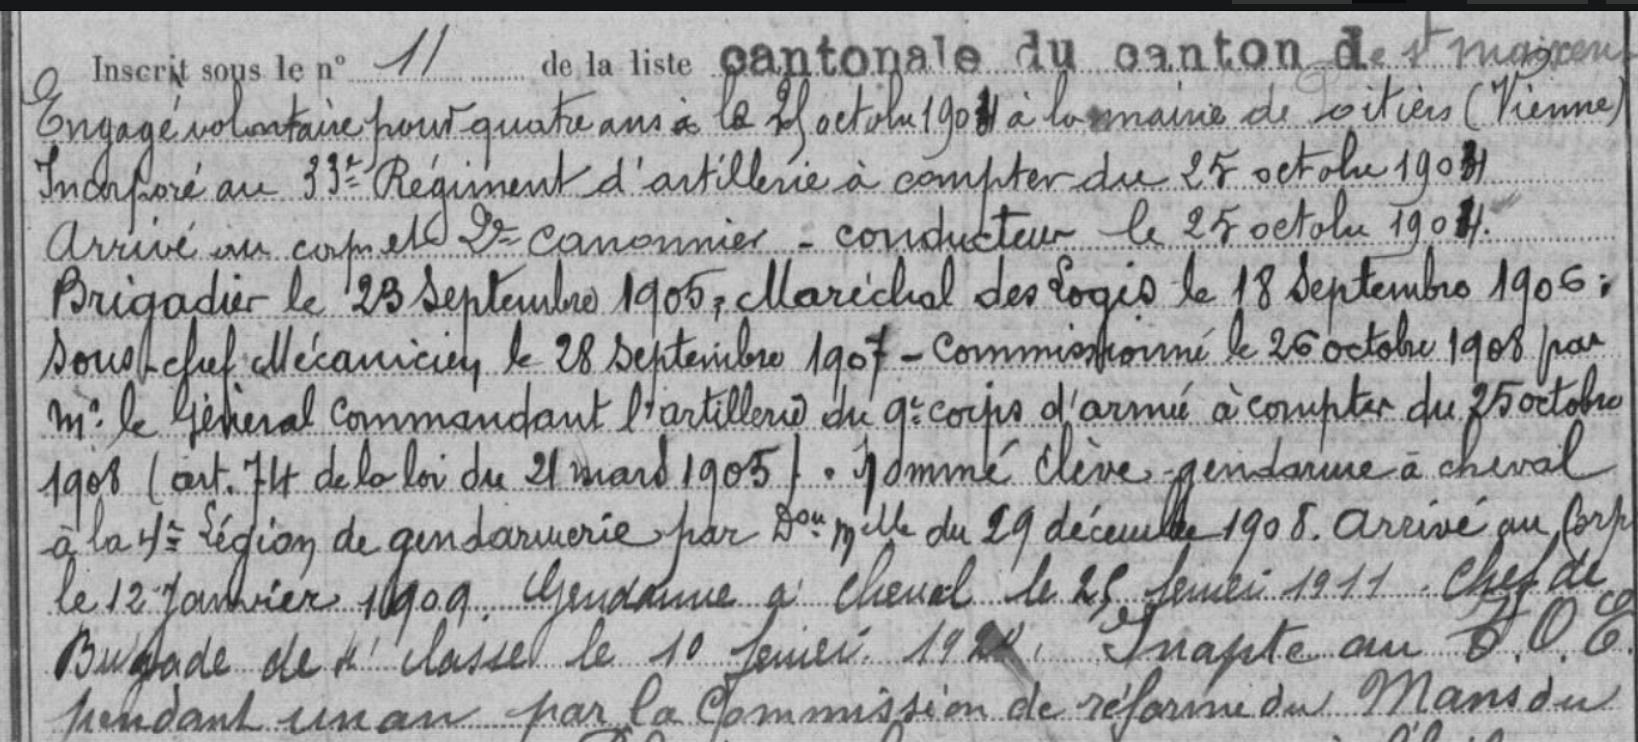 Inscrit sous le n° 11 de la liste cantonale du canton de St Maixen
Engagé volontaire pour quatre ans à le 25 octobre 1904 à la mairie de Poitiers (Vienne)
Incorporé au 33e Régiment d'artillerie à compter du 25 octobre 1904
Arrivé au corps et 2e canonnier - conducteur le 25 octobre 1904.
Brigadier le 23 Septembre 1905; Maréchal des Logis le 18 Septembre 1906;
Sous-chef Mécanicien le 28 Septembre 1907 - Commissionné le 26 octobre 1908 par
Mr. le Général Commandant l'artillerie du 9e corps d'armée à compter du 25 octobre
1908 (art. 74 de la loi du 21 mars 1905). Nommé élève-gendarme à cheval
à la 4e Légion de gendarmerie par Don Mlle du 29 décembre 1908. Arrivé au Corp
le 12 Janvier 1909. Gendarme à cheval le 25 février 1911. Chef de
Brigade de 4e classe le 10 février. Inapte au T.O.E.
pendant un an par la Commission de réforme du Mans du